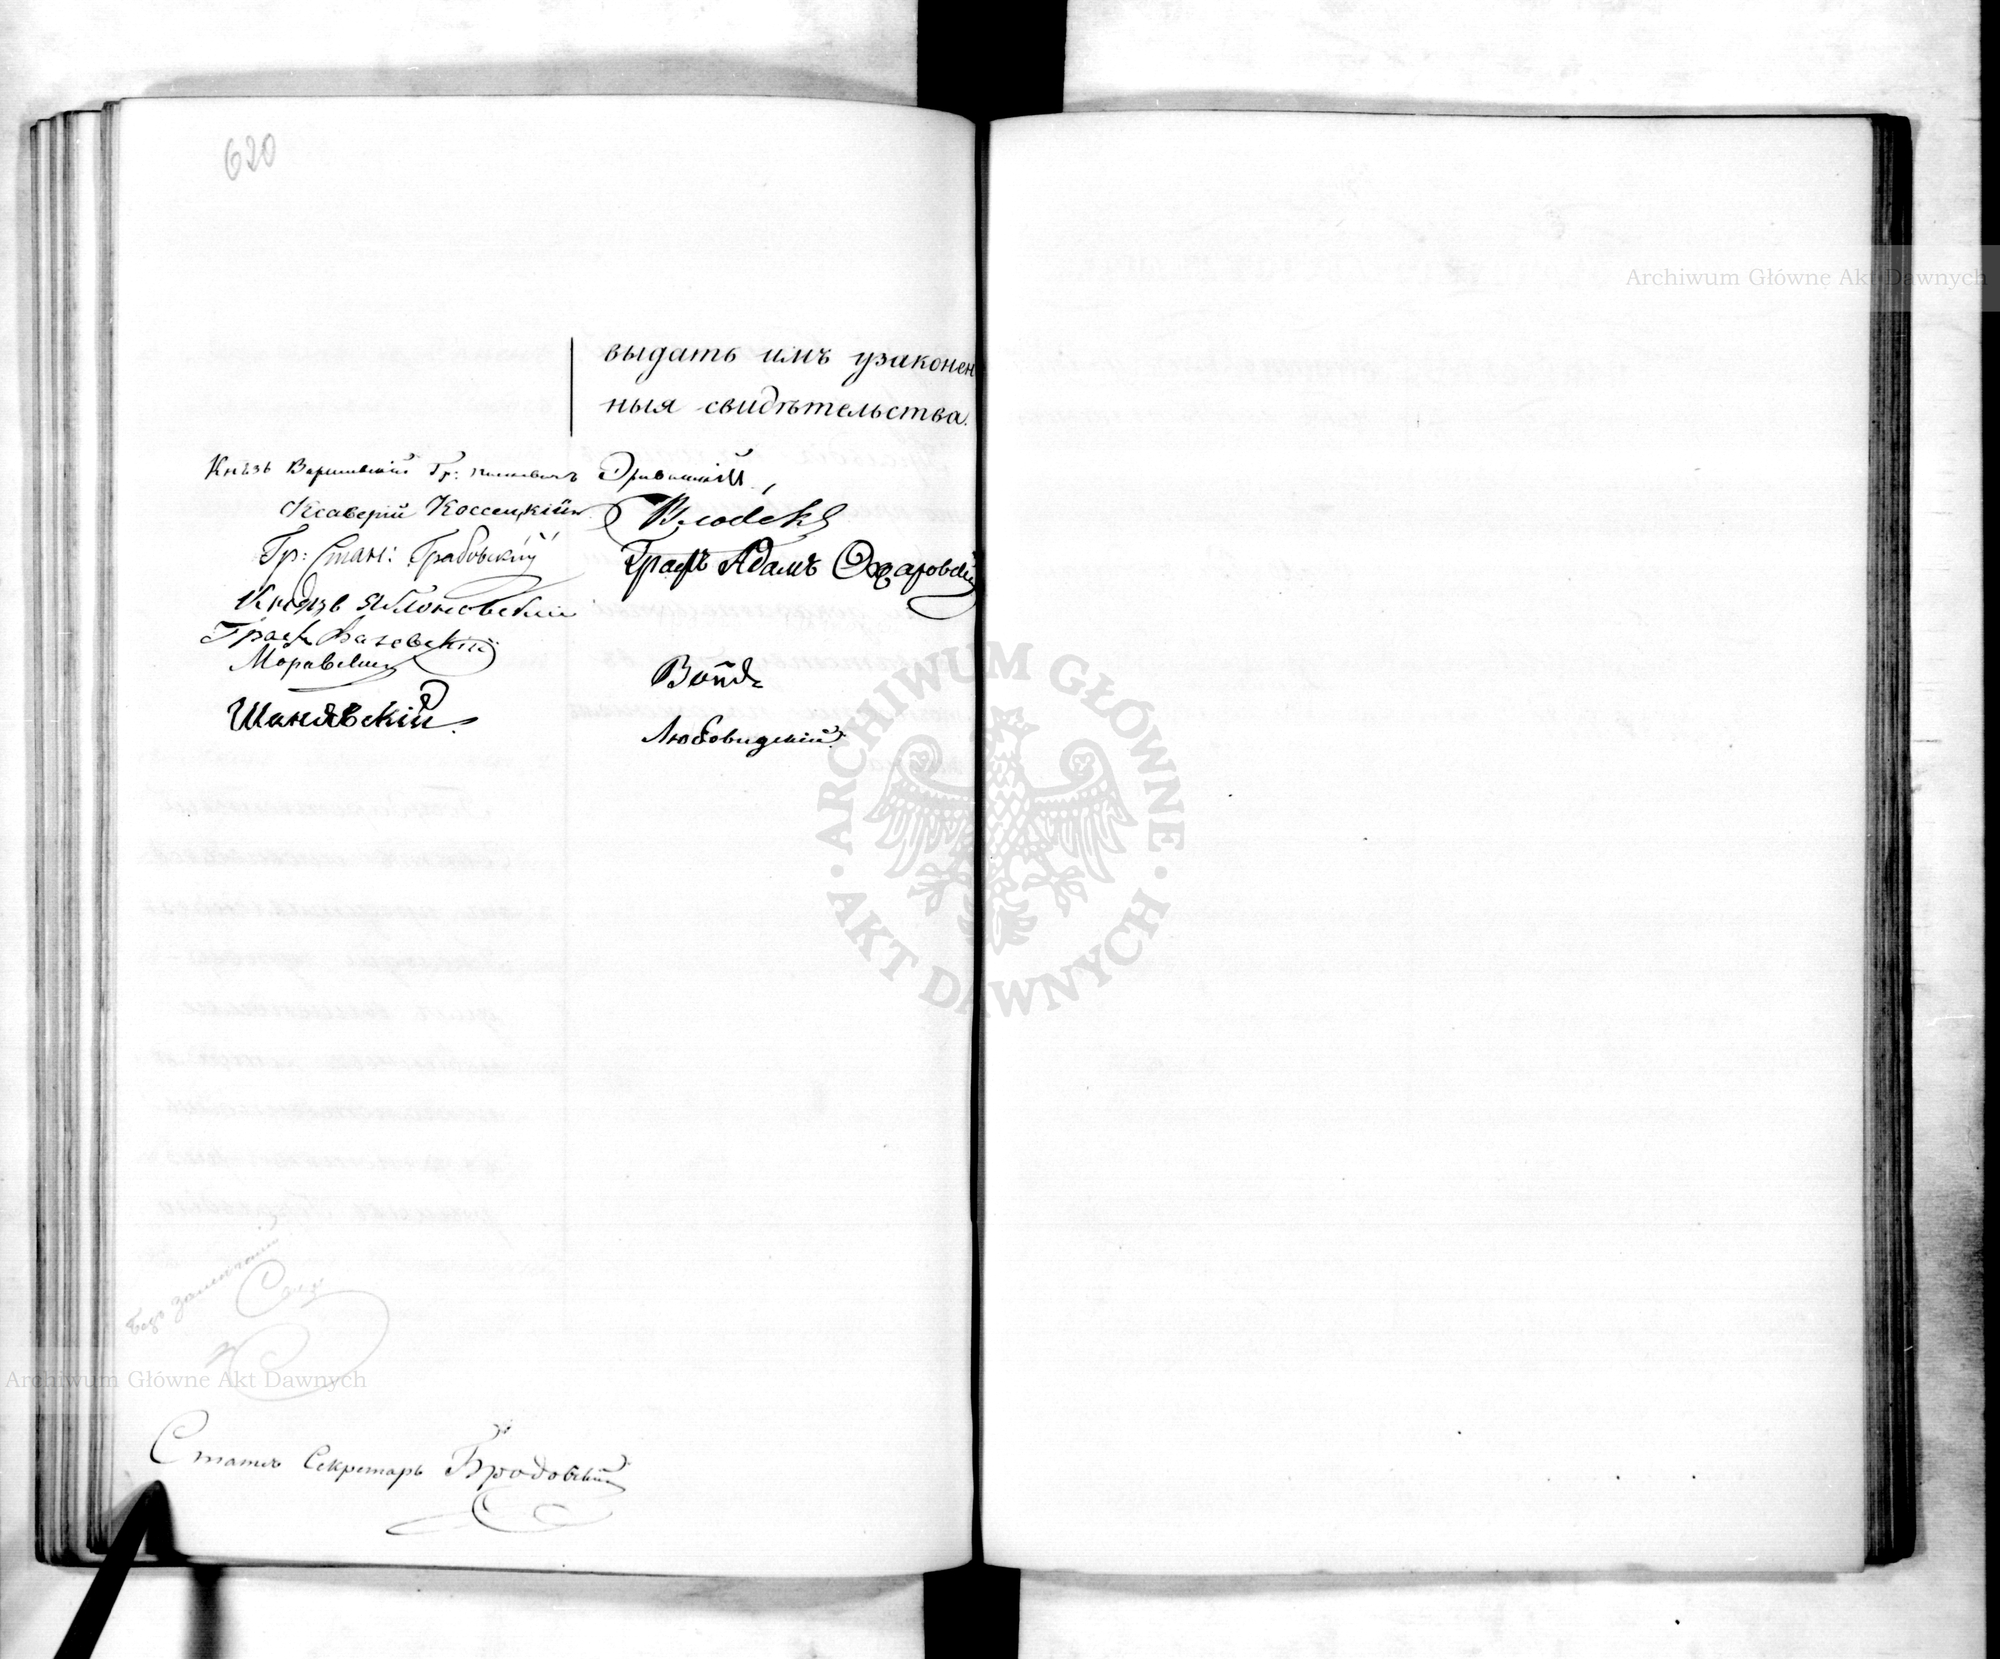 620
выдать имъ узаконен
ныя свидѣтельства.
Князь Варшавскій Гр: Паскевичъ Эриванскій
Ксаверій Коссецкій
Влодекъ
Гр: Стан: Грабовскій
Графъ Адамъ Ожаровскій
Князь Яблоновскій
Графъ
Моравскій
Шанявскій.
Войда
Любовидскій
Безъ замѣчаній
Статсъ Секретарь Бродовскій
Archiwum Główne Akt Dawnych
ARCHIWUM GŁÓWNE · AKT DAWNYCH ·
Archiwum Główne Akt Dawnych